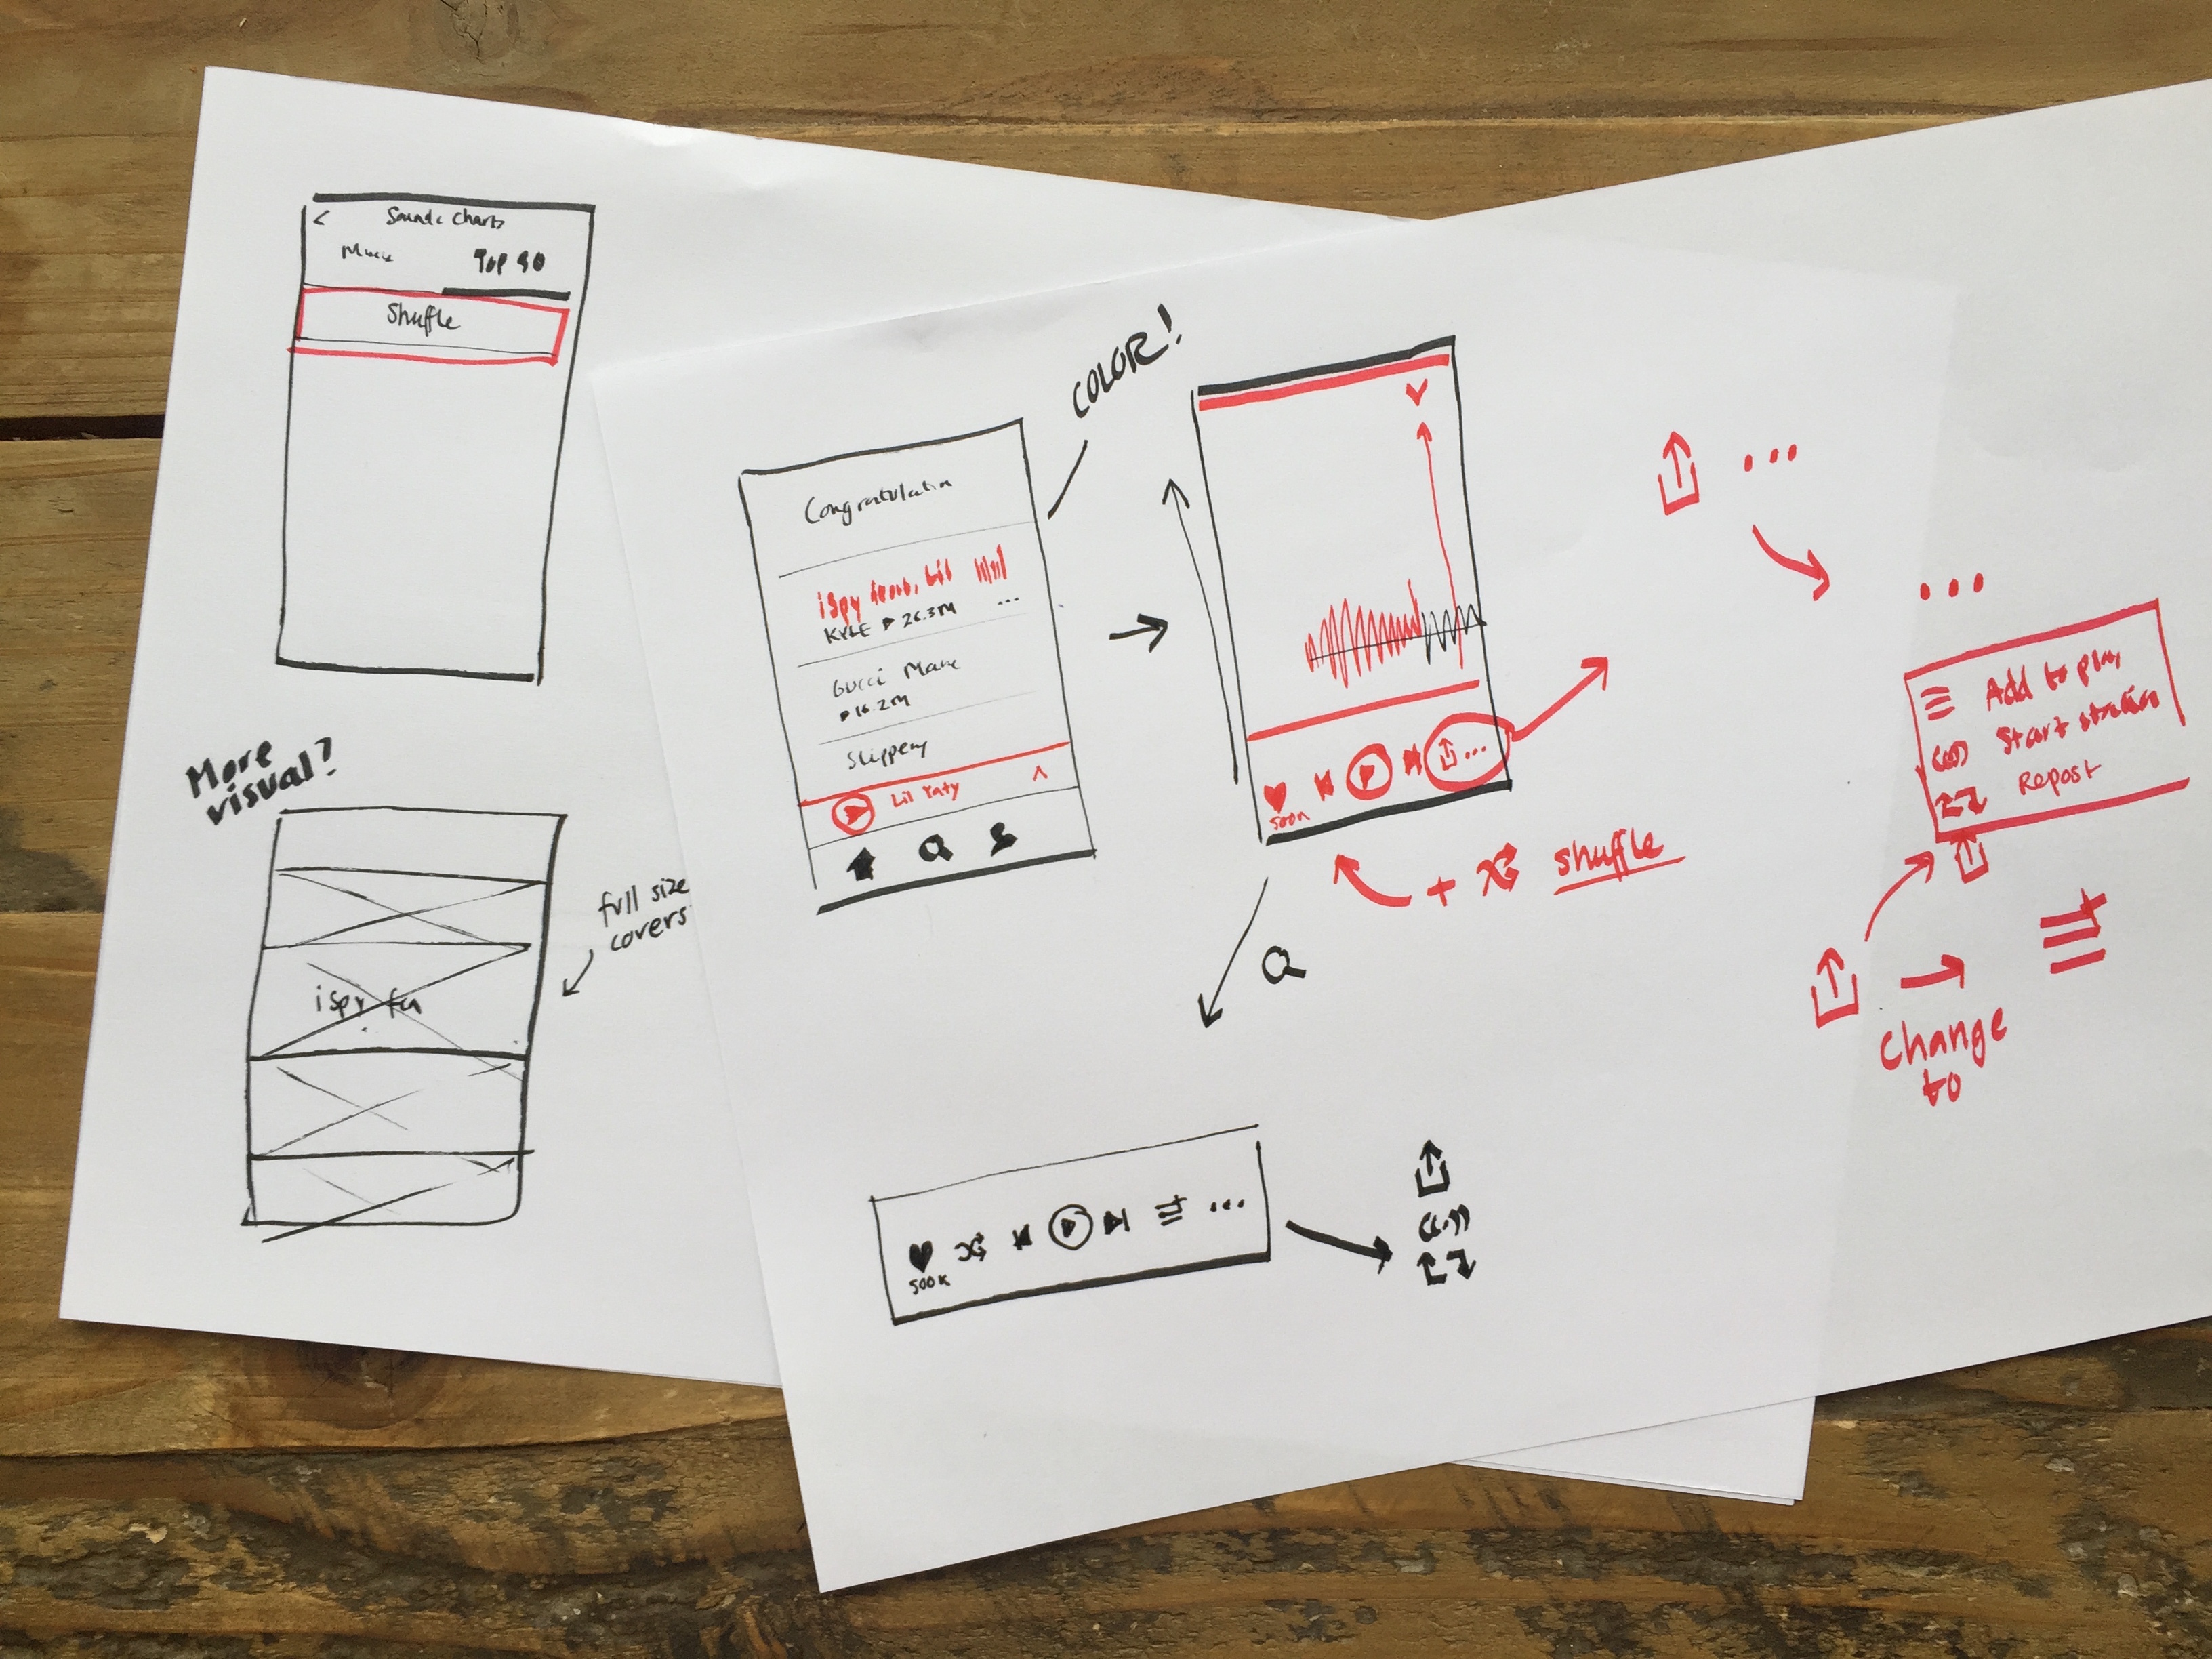 <
Music Top 50
Shuffle
More
visual?
full size
covers
iSpy
COLOR!
Congratulation
iSpy Lil
KYLE 26.3M ...
Gucci Mane
16.2M
Slippery
Lil Yaty ^
500K
...
+ shuffle
500K
...
...
...
Add to play
Start station
Repost
Change
to